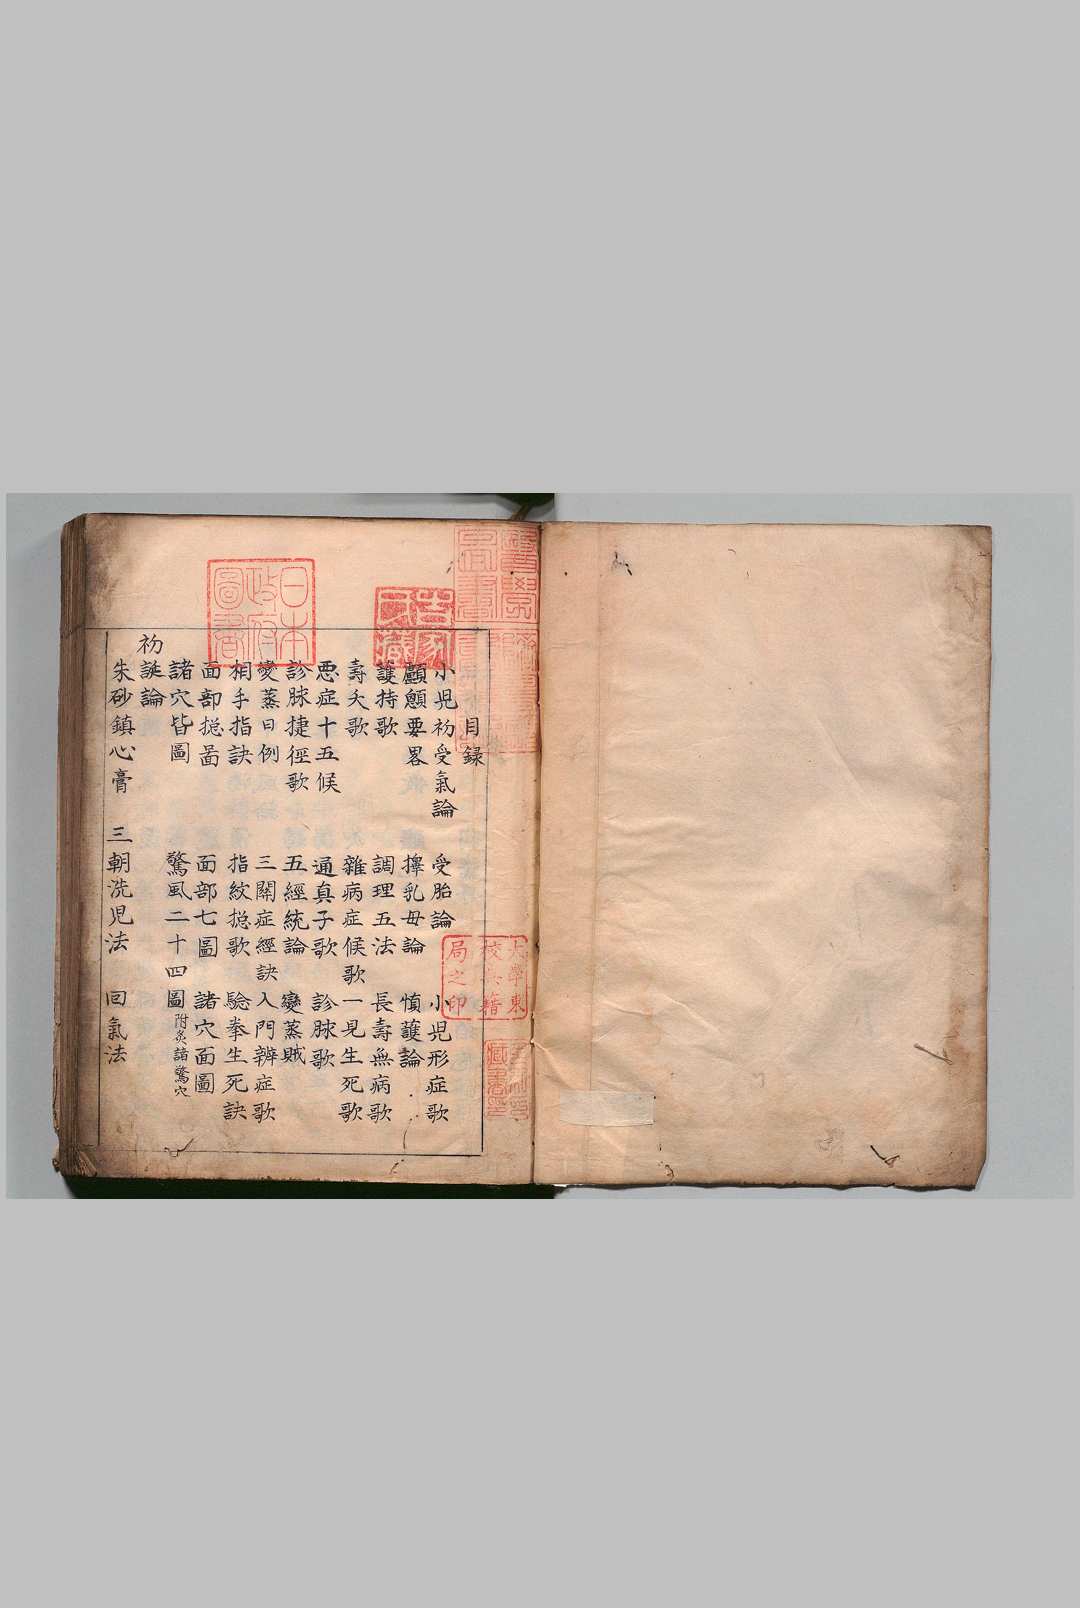 目錄
小児初受氣論 受胎論 小児形症歌
顱顖要畧 擇乳母論 慎護論
護持歌 調理五法 長壽無病歌
壽夭歌 雜病症候歌 一見生死歌
悪症十五候 通真子歌 診脉歌
診脉捷徑歌 五經統論 變蒸賊
變蒸日例 三關症經訣 入門辨症歌
相手指訣 指紋揔歌 驗拳生死訣
面部揔啚 面部七圖 諸穴面圖
諸穴皆圖 驚風二十四圖 附灸諸驚穴
初誕論
朱砂鎮心膏 三朝洗児法 回氣法
日本
政府
圖書
大學東
校典籍
局之印